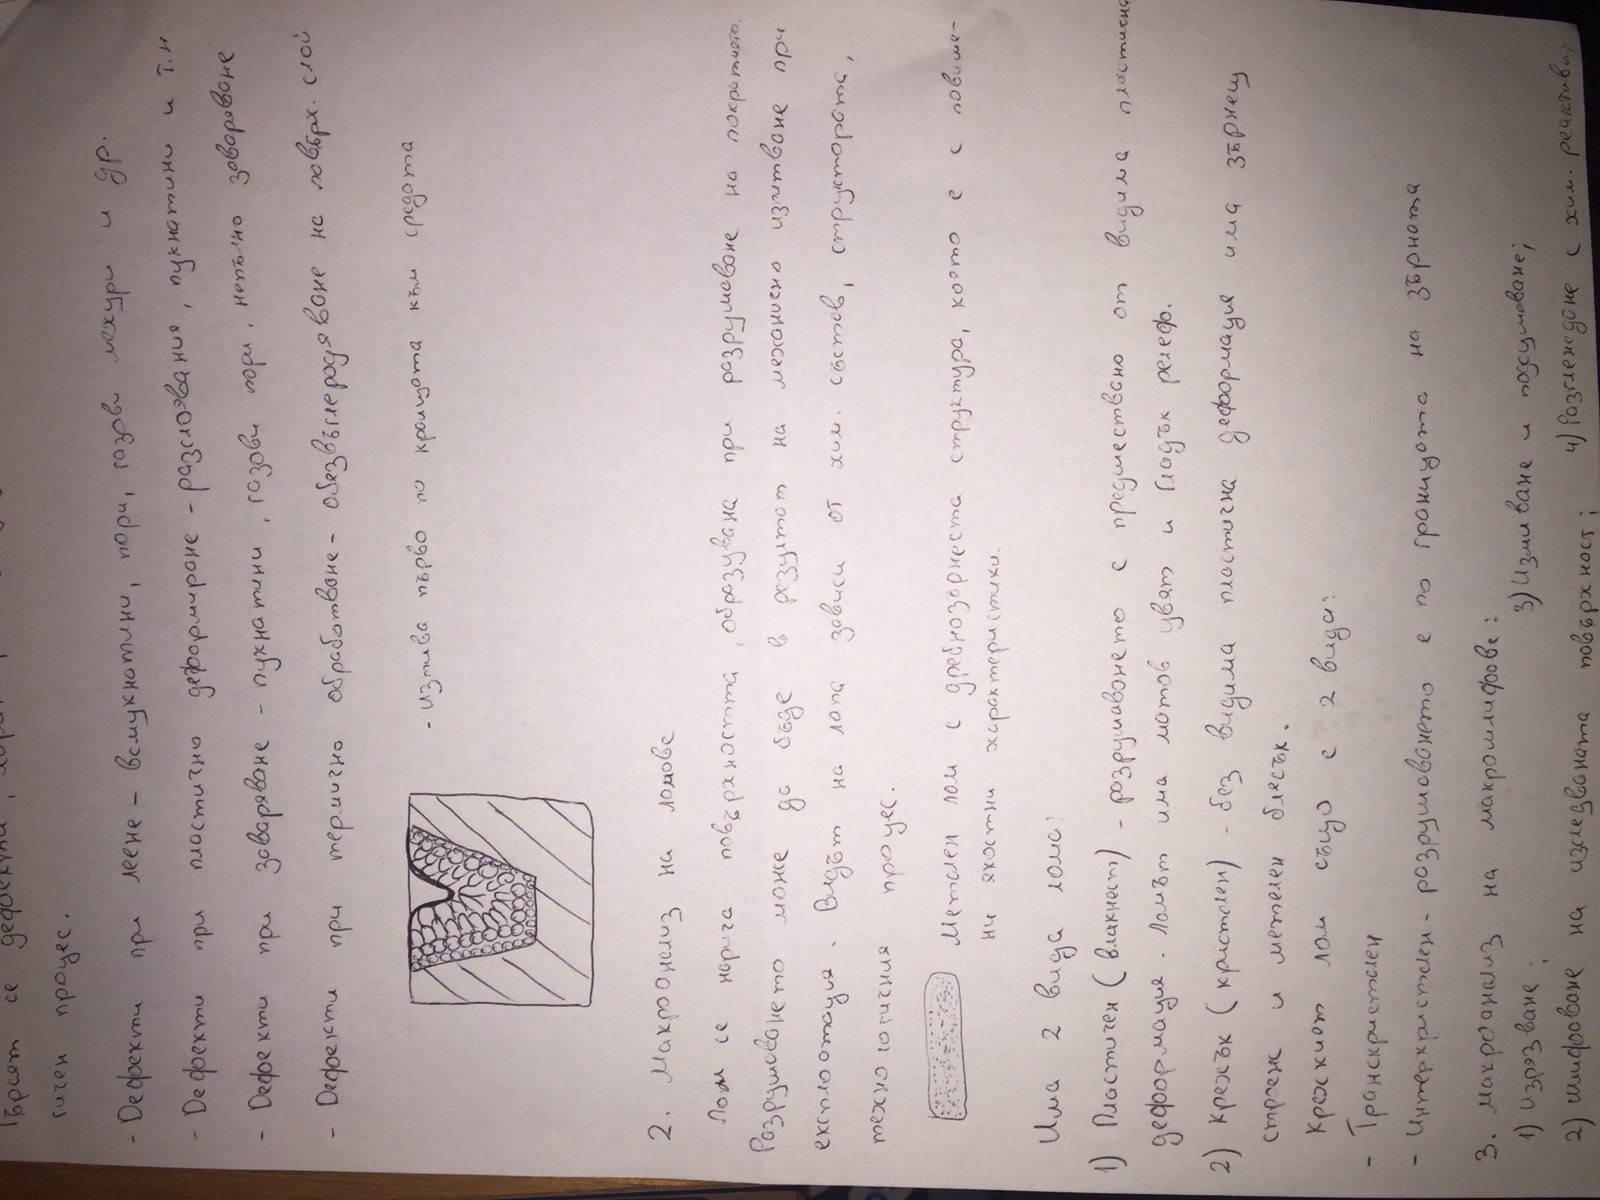 Търсят се дефекти,
гичен процес.
- Дефекти при леене – всмукнатини, пори, газови мехури и др.
- Дефекти при пластично деформиране – разслоявания, пукнатини и т.н.
- Дефекти при заваряване – пукнатини, газови пори, непълно заваряване
- Дефекти при термично обработване – обезвъглеродяване на повърх. слой
- Изтива първо по краищата към средата
2. Макроанализ на ломове
Лом се нарича повърхността, образувана при разрушаване на
Разрушаването може да бъде в резултат на механично изпитване при
експлоатация. Видът на лома зависи от хим. състав, структората,
технологичния процес.
Метален лом с дребнозърнеста структура, която е с повише-
ни якостни характеристики.
Има 2 вида лома:
1) Пластичен (влакнест) – разрушаването е предшествано от видима пластична
деформация. Ломът има матов цвят и гладък релеф.
2) Крехък (кристален) – без видима пластична деформация има зърнещ
строеж и метален блясък.
Крехкият лом също е 2 вида:
- Транскристален
- Интеркристален – разрушаването е по границата на зърната
3. Макроанализ на макрошлифове:
1) Изрязване; 3) Измиване и подсушаване;
2) шлифоване на изследваната повърхност; 4) Разглеждане с хим. реактиви;